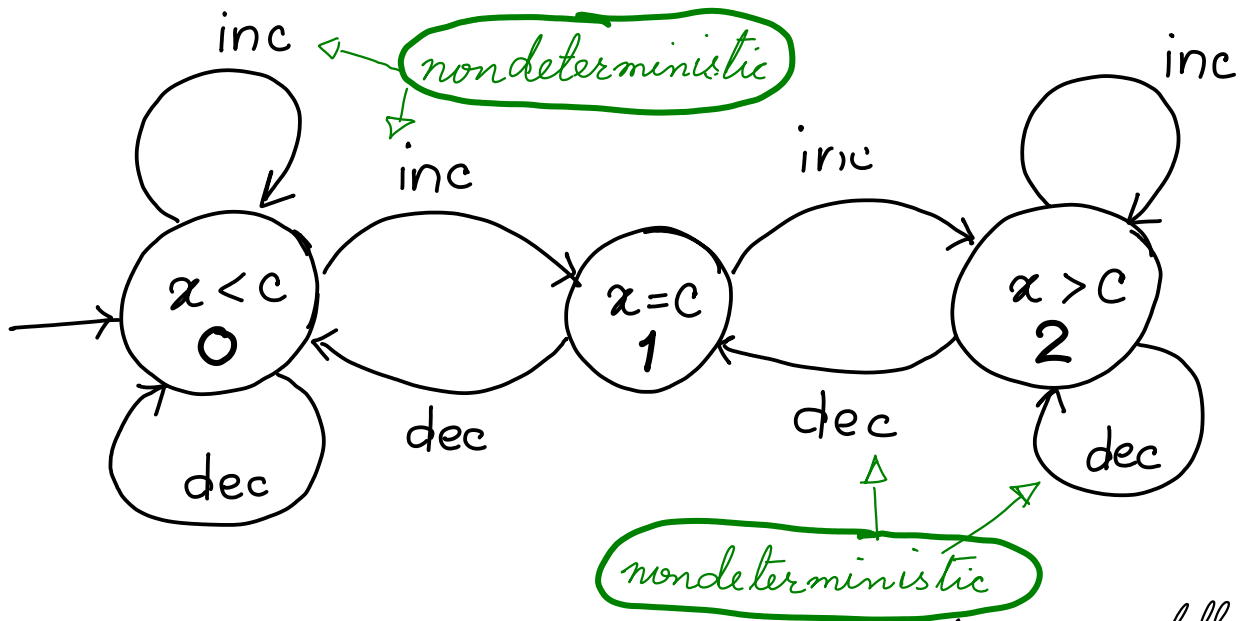 inc
nondeterministic
inc
inc
inc
x < c
0
x = c
1
x > c
2
dec
dec
dec
dec
nondeterministic